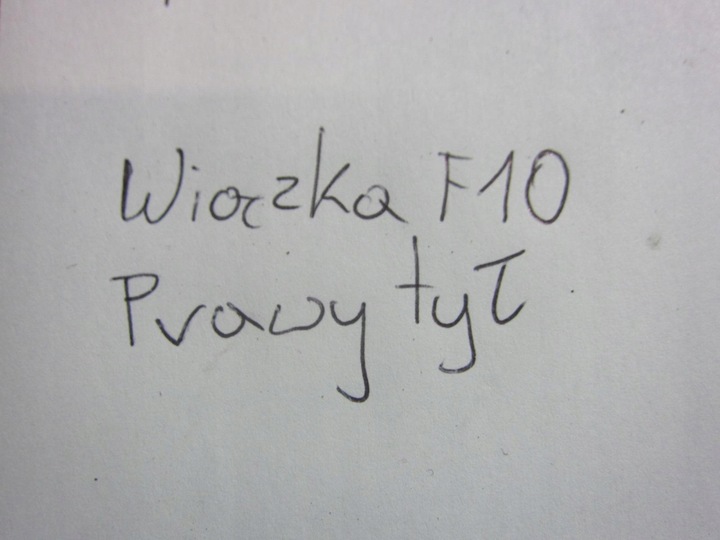 Wiączka F10
Prawy tył